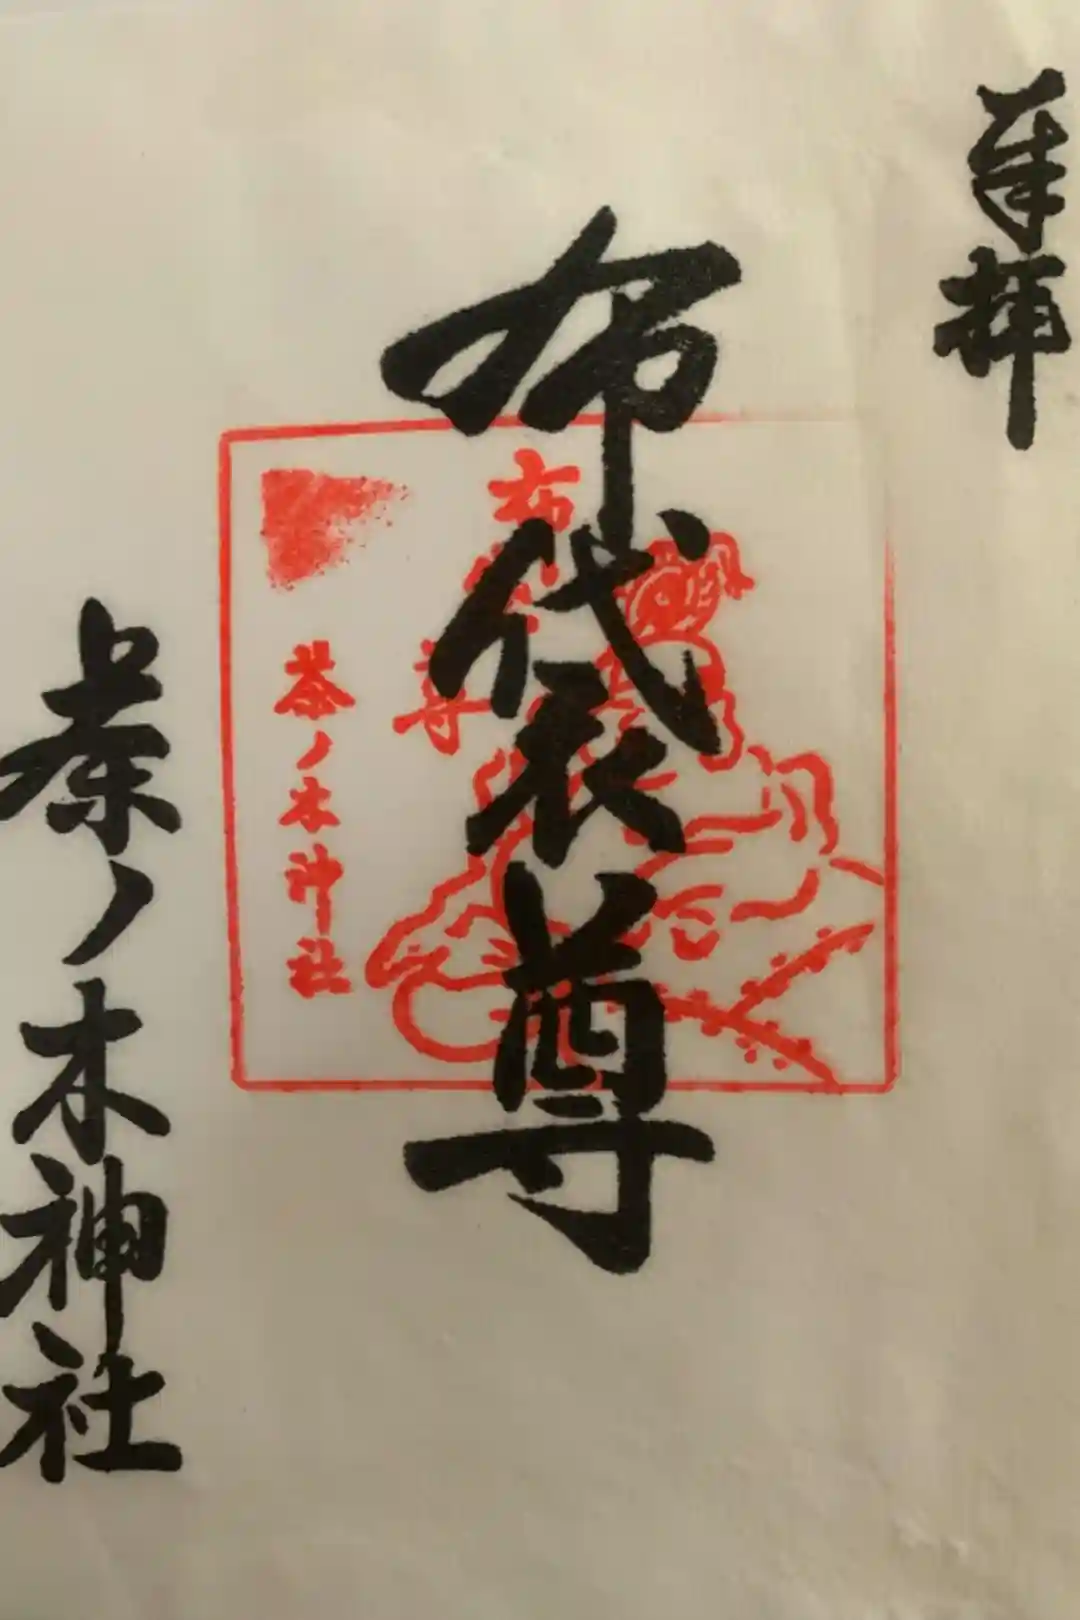 奉拝
布袋尊
布袋尊
茶ノ木神社
茶ノ木神社